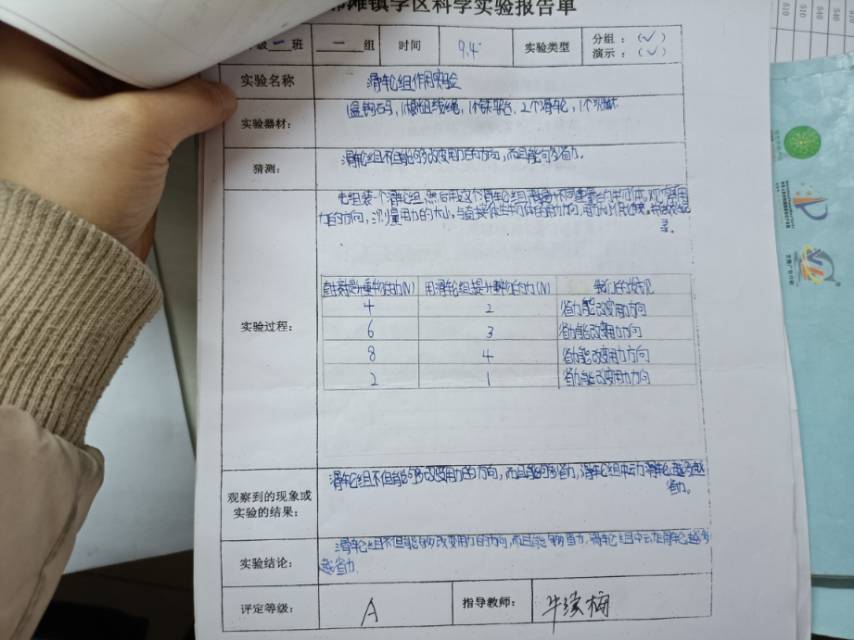 滩镇学区科学实验报告单
班 一 组 时间 9.4 实验类型 分组：（✓）
演示：（✓）
实验名称 滑轮组作用实验
实验器材： 1盒钩码，1根组线绳，1个铁架台，2个滑轮，
猜测： 滑轮组不但能够改变用力的方向，而且能够省力。
先组装一个滑轮组，然后用这个滑轮组
力的方向，测量用力的大小，与直接
录。
实验过程：
直接提升重物的力(N) 用滑轮组提升重物的力(N) 我们的发现
4 2 省力能改变用力方向
6 3 省力能改变用力方向
8 4 省力能改变用力方向
2 1 省力能改变用力方向
观察到的现象或
实验的结果：
滑轮组不但能够改变用力的方向，而且能够省力，滑轮组中动滑轮越多越
省力。
实验结论： 滑轮组不但能够改变用力的方向，而且能够省力。滑轮组中动滑轮越多
越省力
评定等级： A 指导教师： 牛